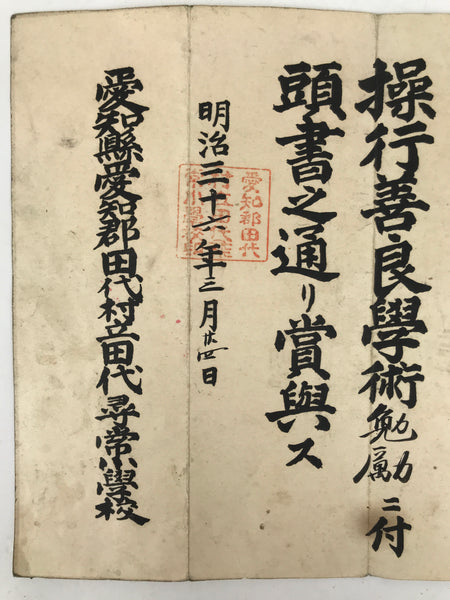 操行善良學術勉勵ニ付
頭書之通リ賞與ス
明治三十六年三月廿四日
愛知縣愛知郡田代村立田代尋常小學校
愛知郡田代